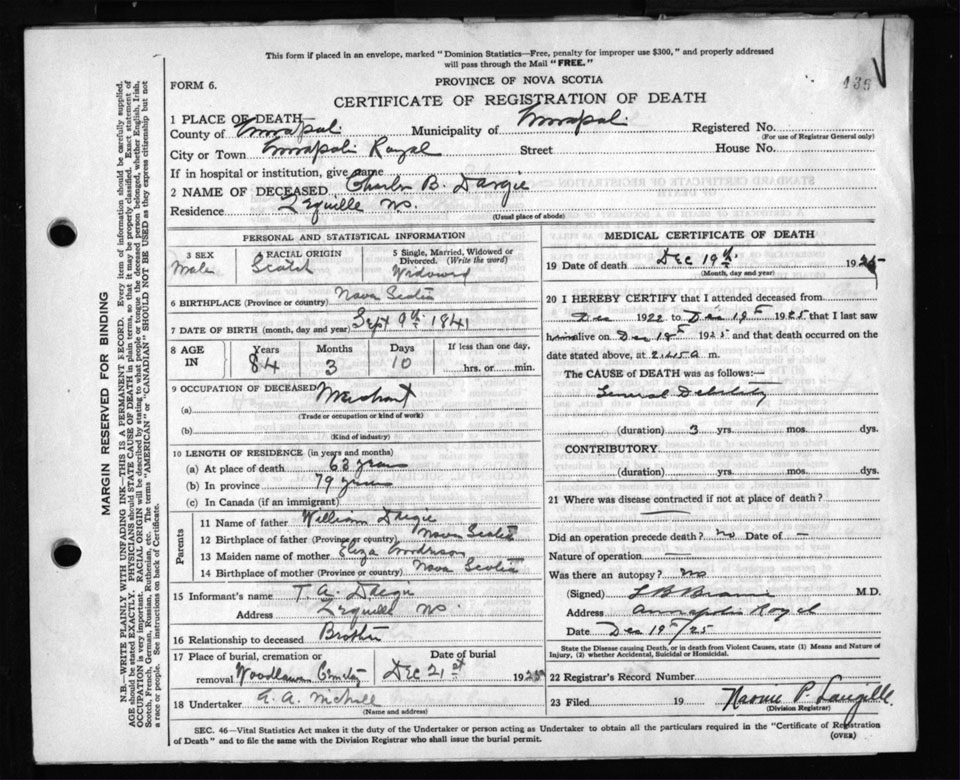 This form if placed in an envelope, marked "Dominion Statistics—Free, penalty for improper use $300," and properly addressed
will pass through the Mail "FREE."
PROVINCE OF NOVA SCOTIA
FORM 6.
CERTIFICATE OF REGISTRATION OF DEATH
1 PLACE OF DEATH—
County of Annapolis Municipality of Annapolis Registered No.
(For use of Registrar General only)
City or Town Annapolis Royal Street House No.
If in hospital or institution, give name
2 NAME OF DECEASED Charles B. Dargie
Residence Lequille NS.
(Usual place of abode)
PERSONAL AND STATISTICAL INFORMATION
3 SEX
Male
4 RACIAL ORIGIN
Scotch
5 Single, Married, Widowed or
Divorced. (Write the word)
Widowed
6 BIRTHPLACE (Province or country) Nova Scotia
7 DATE OF BIRTH (month, day and year) Sept 9th 1841
8 AGE IN
Years Months Days If less than one day,
84 3 10 hrs. or min.
9 OCCUPATION OF DECEASED
(a) Merchant
(Trade or occupation or kind of work)
(b)
(Kind of industry)
10 LENGTH OF RESIDENCE (in years and months)
(a) At place of death 63 years
(b) In province 79 years
(c) In Canada (if an immigrant)
Parents
11 Name of father William Dargie
12 Birthplace of father (Province or country) Nova Scotia
13 Maiden name of mother Eliza
14 Birthplace of mother (Province or country) Nova Scotia
15 Informant's name T. A. Dargie
Address Lequille NS.
16 Relationship to deceased Brother
17 Place of burial, cremation or removal Woodlawn Cemetery
Date of burial Dec 21st 1925
18 Undertaker A. A.
(Name and address)
MEDICAL CERTIFICATE OF DEATH
19 Date of death Dec 19th 1925
(Month, day and year)
20 I HEREBY CERTIFY that I attended deceased from
Dec 1922 to Dec 19th 1925 that I last saw
him alive on Dec 18th 1925 and that death occurred on the
date stated above, at 2.45 a m.
The CAUSE of DEATH was as follows:—
General Debility
(duration) 3 yrs. mos. dys.
CONTRIBUTORY
(duration) yrs. mos. dys.
21 Where was disease contracted if not at place of death?
—
Did an operation precede death? no Date of —
Nature of operation —
Was there an autopsy? no
(Signed) L B Braine M.D.
Address Annapolis Royal
Date Dec 19th/25
State the Disease causing Death, or in death from Violent Causes, state (1) Means and Nature of
Injury, (2) whether Accidental, Suicidal or Homicidal.
22 Registrar's Record Number
23 Filed 19 Naomie P. Langille
(Division Registrar)
SEC. 46—Vital Statistics Act makes it the duty of the Undertaker or person acting as Undertaker to obtain all the particulars required in the "Certificate of Registration
of Death" and to file the same with the Division Registrar who shall issue the burial permit.
(OVER)
MARGIN RESERVED FOR BINDING
N.B.—WRITE PLAINLY WITH UNFADING INK—THIS IS A PERMANENT RECORD. Every item of information should be carefully supplied.
AGE should be stated EXACTLY. PHYSICIANS should STATE CAUSE OF DEATH in plain terms, so that it may be properly classified. Exact statement of
OCCUPATION is very important. RACIAL ORIGIN will be described by stating to what people or tongue the deceased person belonged, whether English, Irish,
Scotch, French, German, Russian, Ruthenian, etc. The terms "AMERICAN" or "CANADIAN" SHOULD NOT BE USED as they express citizenship but not
a race or people. See instructions on back of Certificate.